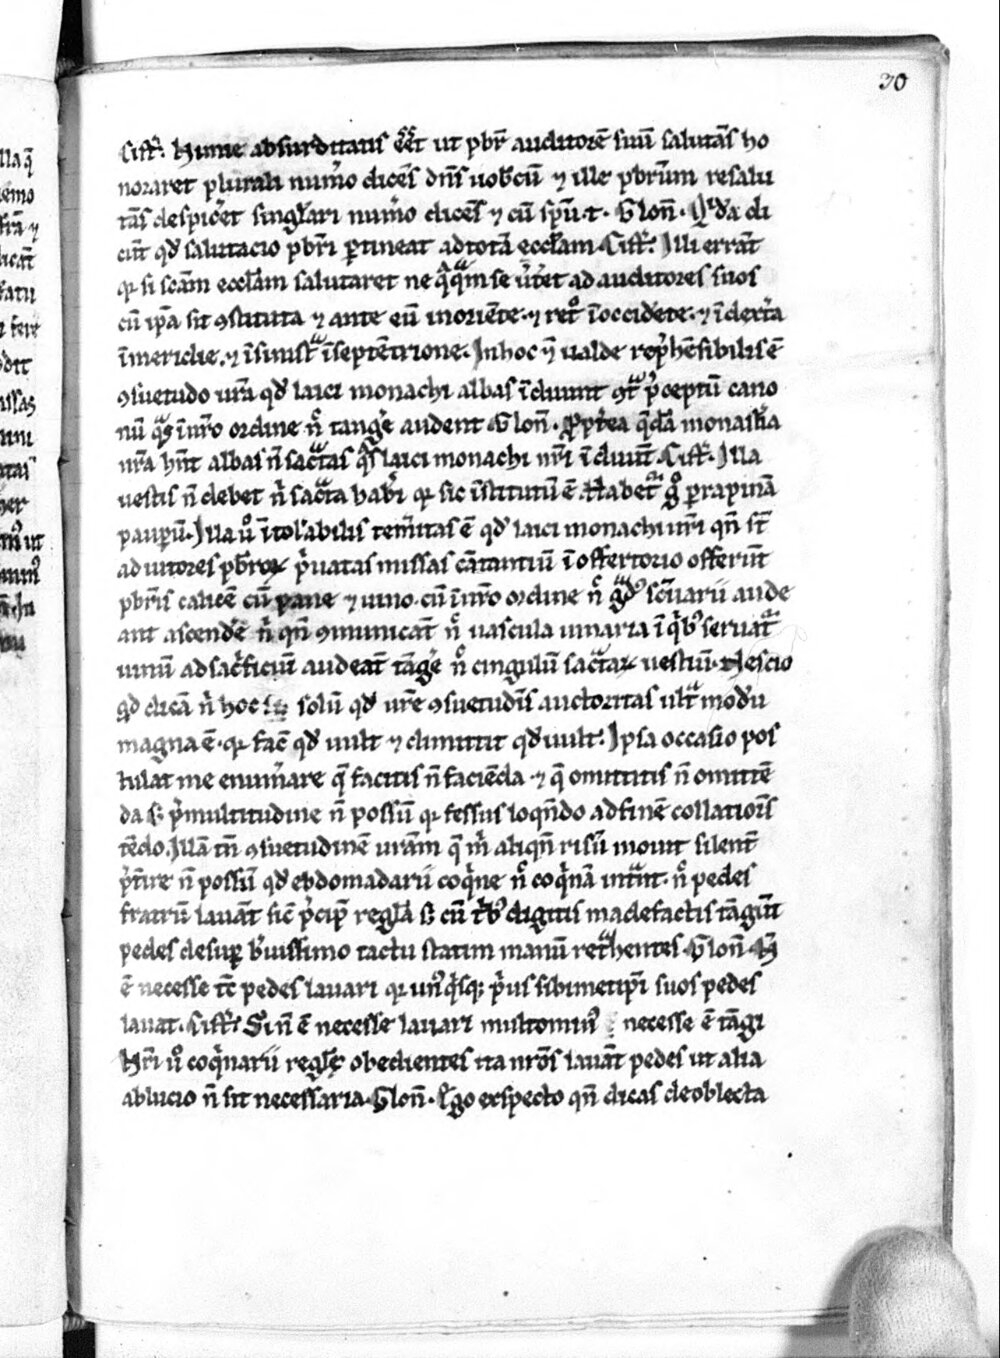 30
Cist̄. Hui⁹ absurditatis e̅et ut pb̅r auditore̅ suu̅ saluta̅s ho
noraret plurali num̅o dice̅s dn̅s uob̅cu̅ ⁊ ille pb̅rum resalu
ta̅s despic̅et singl̅ari num̅o dice̅s ⁊ cu̅ sp̅u. t. Clun̅. Q̅da̅ di
cu̅t qd̅ salutacio pb̅ri ꝑtineat ad tota̅ eccl̅am. Cist̄. Illi erra̅t
qꝛ si sc̅am eccl̅am salutaret ne q̅q̅m se u̅t̅et ad auditores suos
cu̅ ip̅a sit ꝯstituta ⁊ ante eu̅ in orie̅te. ⁊ ret̊ i̅ occide̅te. ⁊ i̅ dext̅a
i̅ meridie. ⁊ i̅ sinist̅ i̅ septe̅trione. In hoc n̅ ualde rep̅he̅sibilis e̅
ꝯsuetudo ur̅a qd̅ laici monachi albas i̅duunt ꝯt̅ p̅ceptu̅ cano
nu̅ q̅s i̅ nr̅o ordine n̊ tang̅e audent. Clun̅. P̅pt̅ea q̅da̅ monast̅ia
nr̅a hn̅t albas n̅ sac̅tas q̅s laici monachi nr̅i i̅duu̅t. Cist̄. Illa
uestis n̅ debet n̅ sac̅ta hab̅i qꝛ sic i̅stitutu̅ e̅. Habet̅ g̊ ꝑ rapina̅
paup̅u̅. Illa ů i̅tol̅abilis tem̅itas e̅ qd̅ laici monachi ur̅i qn̅ st̅
adiutores pb̅roꝝ p̅uatas missas ca̅tantiu̅ i̅ offertorio offeru̅t
pb̅ris calice̅ cu̅ pane ⁊ uino. cu̅ i̅ nr̅o ordine n̊ g̅d⁹ sc̅uarii aude
ant ascend̅e n̅ qn̅ ꝯmunica̅t n̊ uascula uinaria i̅ q̅b⁹ seruat̅
uinu̅ ad sac̅ficiu̅ audea̅t ta̅g̅e n̊ cingulu̅ sac̅taꝝ uestiu̅. Nescio
qd̅ dica̅ n̅ hoc solu̅ qd̅ ur̅e ꝯsuetudi̅s auctoritas ult̅ modu̅
magna e̅. qꝛ fac̅ qd̅ uult ⁊ dimittit qd̅ uult. Ipsa occasio pos
tulat me enum̅are q̅ facitis n̅ facie̅da. ⁊ q̅ omittitis n̅ omitte̅
da s; p̅ multitudine n̅ possu̅ qꝛ fessus loqn̅do ad fine̅ collatio̅is
te̅do. Illa̅ tn̅ ꝯsuetudine̅ ura̅m q̅ m̅ aliqn̅ risu̅ mouit silent̅
p̅t̅ire n̅ possu̅ qd̅ ebdomadarii coq̅ne n̊ coq̅na̅ int̅nt. n̊ pedes
fratru̅ laua̅t sic̅ p̅cip̅ regl̅a s; cu̅ t̅b⁹ digitis madefactis ta̅gu̅t
pedes desup̅ b̅uissimo tactu statim manu̅ ret̅hentes. Clun̅. N̅
e̅ necesse t̅c̅ pedes lauari qꝛ un⁹q̅sq; p̅us sibimetip̅i suos pedes
lauat. Cist̄. Si n̅ e̅ necesse lauari multomin⁹ necesse e̅ ta̅gi
Nr̅i ů coq̅narii regl̅ę obedientes ita nr̅os laua̅t pedes ut alia
ablucio n̅ sit necessaria. Clun̅. Ego exspecto qn̅ dicas de oblecta